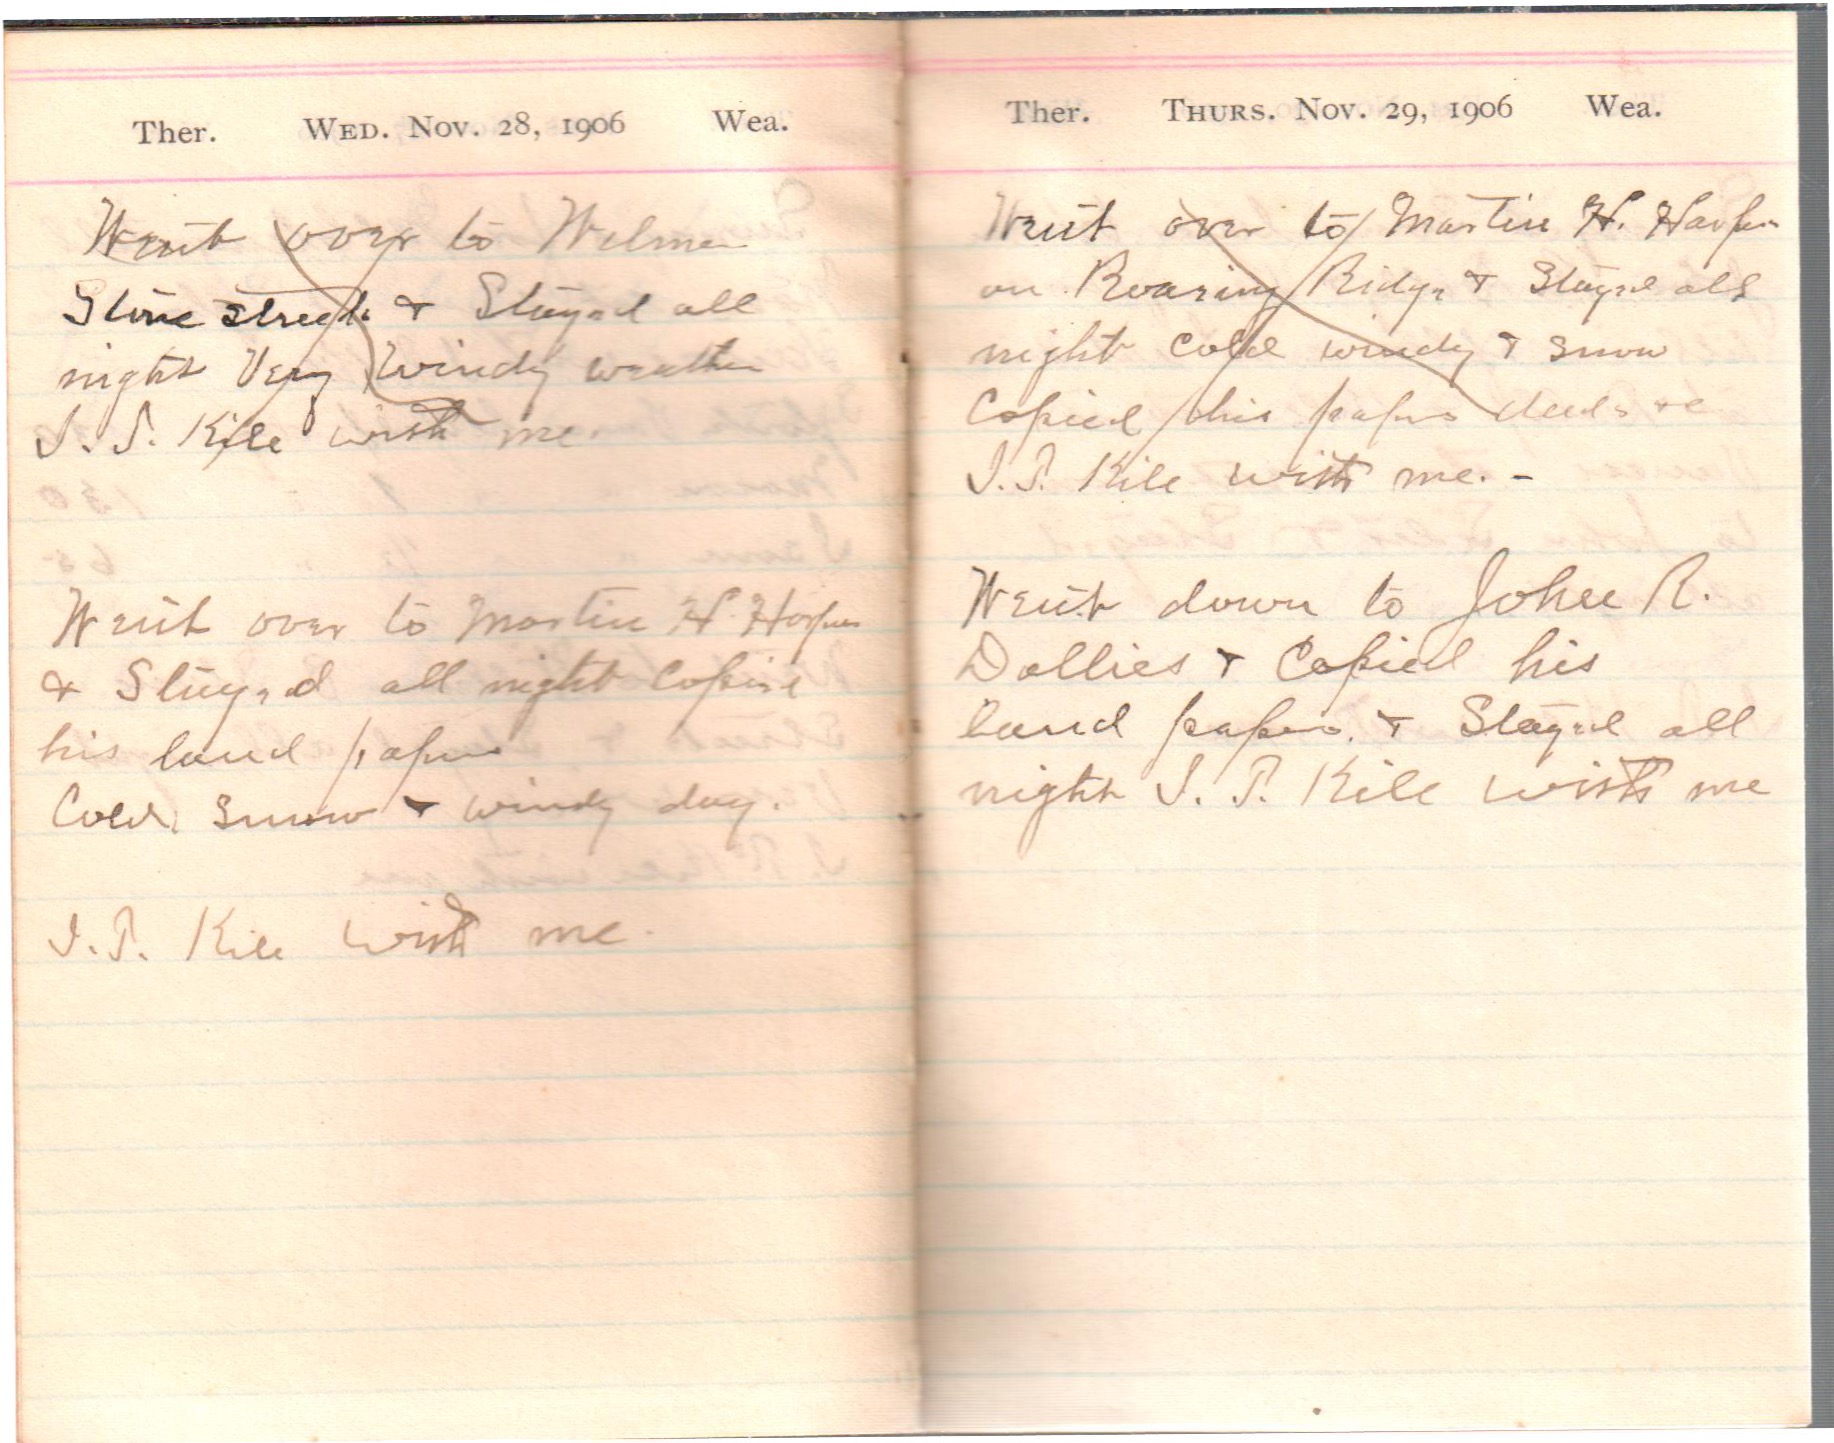 Ther. WED. NOV. 28, 1906 Wea.
Went over to Wilmer
Stone street & Stayed all
night Very Windy weather
I. P. Kile with me.
Went over to Martin H. Harper
& Stayed all night Copied
his land papers
Cold snow & windy day.
I. P. Kile with me.
Ther. THURS. NOV. 29, 1906 Wea.
Went over to Martin H. Harper
on Roaring Ridge & Stayed all
night Cold windy & snow
Copied this papers deeds &c
I. P. Kile with me. -
Went down to John R.
Dollies & Copied his
land papers. & Stayed all
night I. P. Kile with me